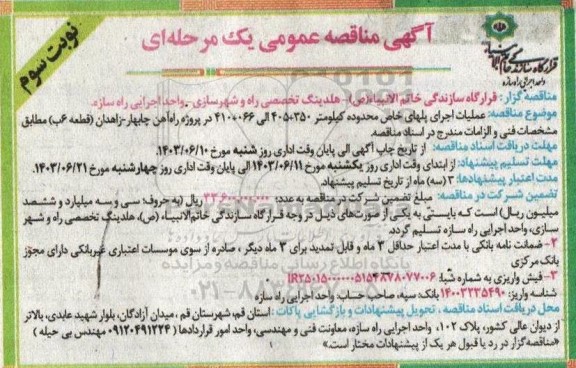 آگهی مناقصه عمومی یک مرحله‌ای
نوبت سوم
قرارگاه سازندگی خاتم الانبیاء
واحد اجرایی راه سازه
مناقصه گزار: قرارگاه سازندگی خاتم الانبیاء(ص) - هلدینگ تخصصی راه و شهرسازی - واحد اجرایی راه سازه.
موضوع مناقصه: عملیات اجرای پلهای خاص محدوده کیلومتر ۴۰۵+۳۵۰ الی ۴۱۰+۰۶۶ در پروژه راه‌آهن چابهار-زاهدان (قطعه ۶ب) مطابق
مشخصات فنی و الزامات مندرج در اسناد مناقصه.
مهلت دریافت اسناد مناقصه: از تاریخ چاپ آگهی الی پایان وقت اداری روز شنبه مورخ ۱۴۰۳/۰۶/۱۰.
مهلت تسلیم پیشنهاد: از ابتدای وقت اداری روز یکشنبه مورخ ۱۴۰۳/۰۶/۱۱ الی پایان وقت اداری روز چهارشنبه مورخ ۱۴۰۳/۰۶/۲۱.
مدت اعتبار پیشنهادها: ۳ (سه) ماه از تاریخ تسلیم پیشنهاد.
تضمین شرکت در مناقصه: مبلغ تضمین شرکت در مناقصه به عدد: ۳۳.۶۰۰.۰۰۰.۰۰۰ ریال (به حروف: سی و سه میلیارد و ششصد
میلیون ریال) است که بایستی به یکی از صورت‌های ذیل در وجه قرارگاه سازندگی خاتم الانبیاء (ص)، هلدینگ تخصصی راه و شهر
سازی، واحد اجرایی راه سازه تسلیم گردد.
۲- ضمانت نامه بانکی با مدت اعتبار حداقل ۳ ماه و قابل تمدید برای ۳ ماه دیگر، صادره از سوی موسسات اعتباری غیربانکی دارای مجوز
بانک مرکزی
۳- فیش واریزی به شماره شبا:
شناسه واریز: ۱۴۰۰۳۳۵۴۹۰ بانک: سپه، صاحب حساب: واحد اجرایی راه سازه
محل دریافت اسناد مناقصه، تحویل پیشنهادات و بازگشایی پاکات: استان قم، شهرستان قم، میدان آزادگان، بلوار شهید عابدی، بالاتر
از دیوان عالی کشور، پلاک ۱۰۲، واحد اجرایی راه سازه، معاونت فنی و مهندسی، واحد امور قراردادها (۰۹۱۲۰۴۹۱۲۲۴ مهندس بی حیله)
«مناقصه‌گزار در رد یا قبول هر یک از پیشنهادات مختار است.»
پایگاه اطلاع رسانی مناقصه و مزایده